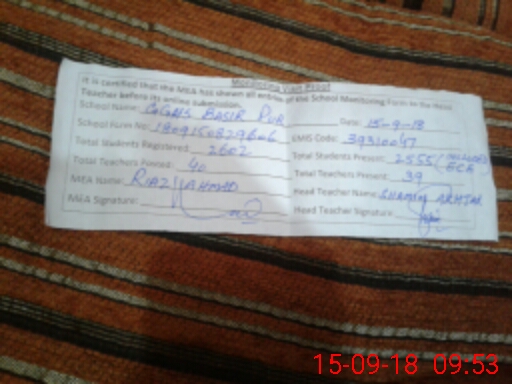 Monitoring Visit Proof
It is certified that the MEA has shown all entries of the School Monitoring Form to the Head
Teacher before its online submission.
School Name: GGHS BASIR PUR Date: 15-9-18
School Form No: EMIS Code: 39310047
Total Students Registered: 2602 Total Students Present: 2555 (INCLUDED ECE
Total Teachers Posted: 40 Total Teachers Present: 39
MEA Name: RIAZ AHMAD Head Teacher Name: SHAMIM AKHTAR
MEA Signature: Head Teacher Signature:
15-09-18 09:53